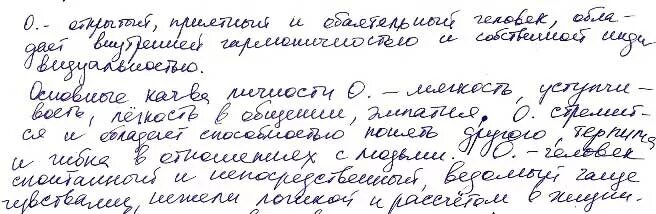 О. - открытый, приятный и обаятельный человек, обла-
дает внутренней гармоничностью и собственной инди
видуальностью.
Основные кач-ва личности О. – мягкость, уступчи-
вость, лёгкость в общении, эмпатия. О. стремит-
ся и обладает способностью понять другого, терпима
и гибка в отношениях с людьми. О. – человек
спонтанный и непосредственный, ведомый чаще
чувствами, нежели логикой и рассчётом в жизни.